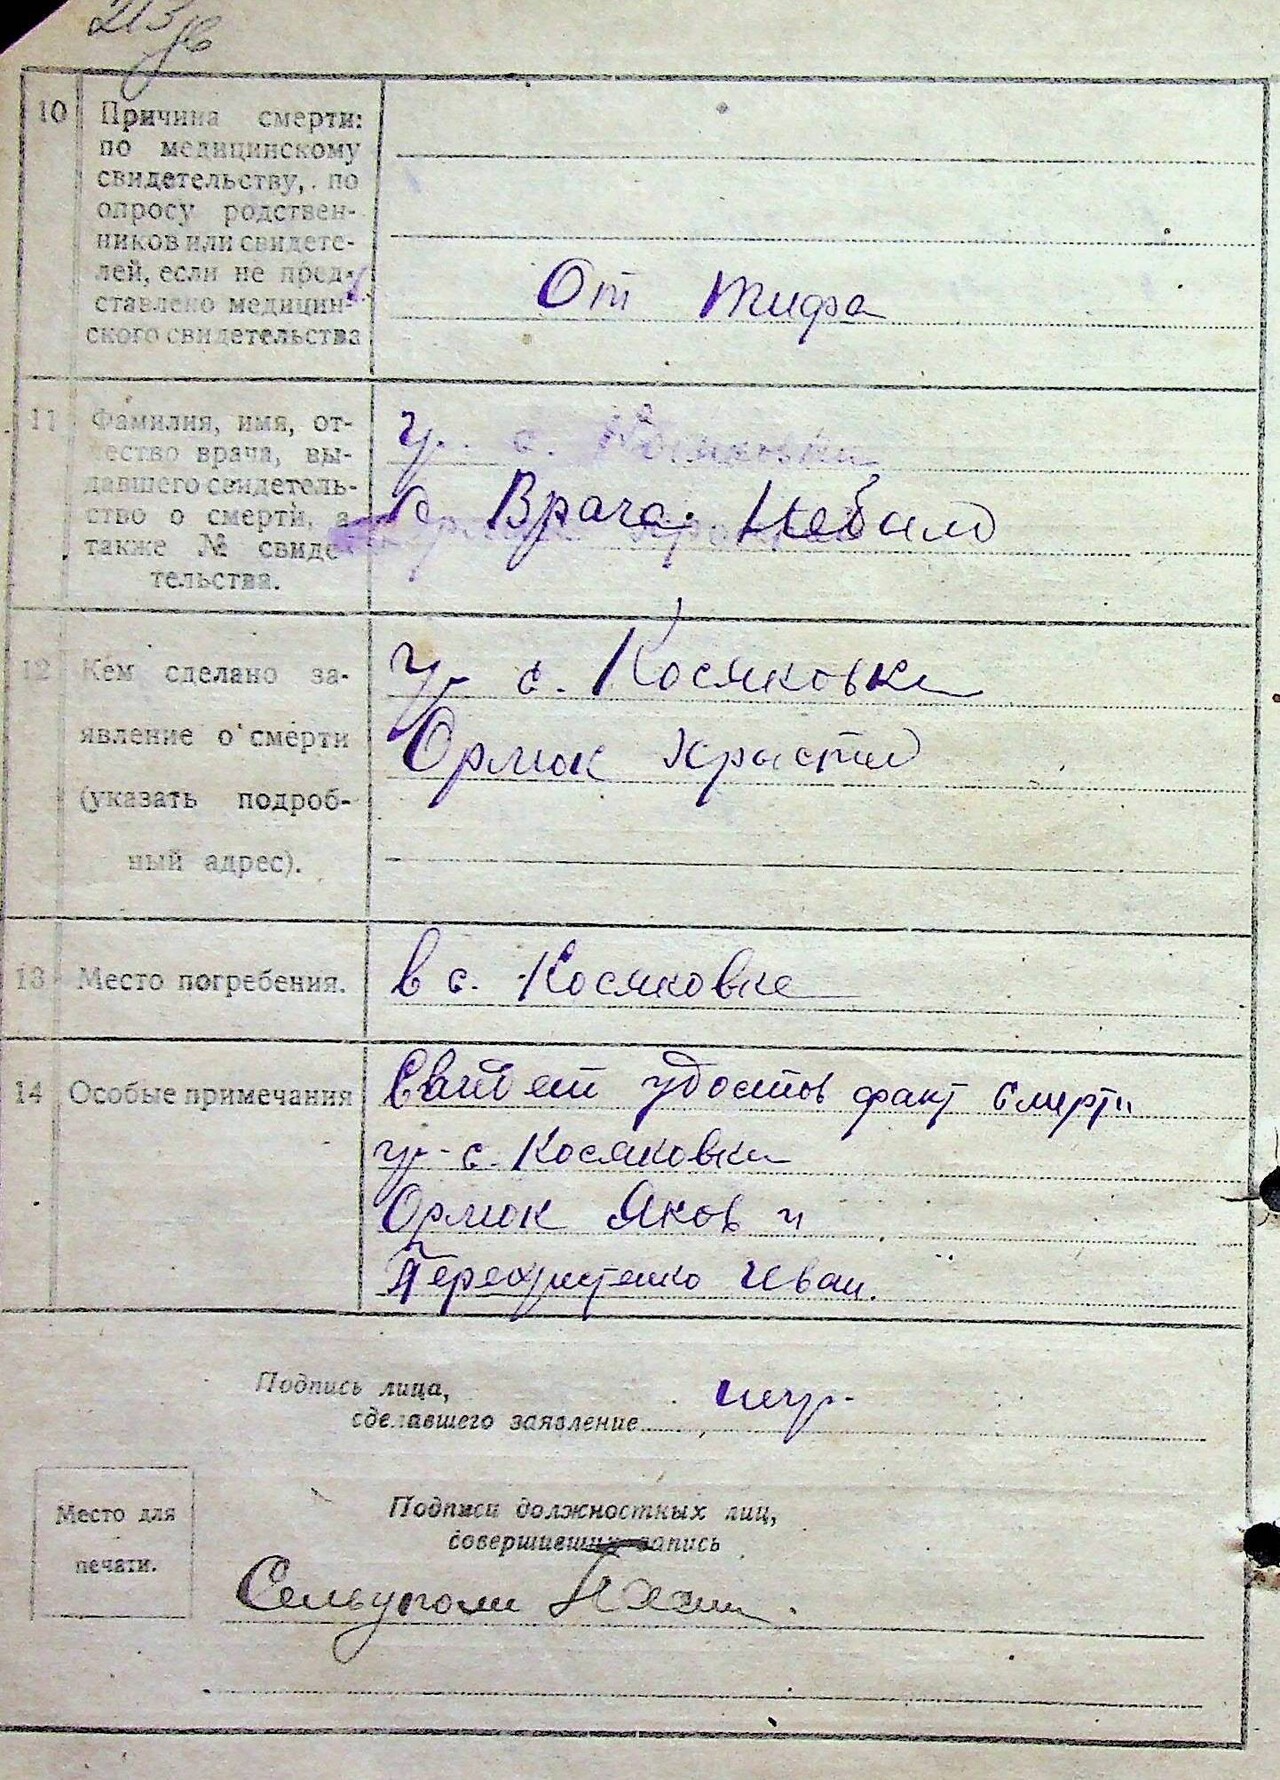 10 Причина смерти:
по медицинскому
свидетельству, по
опросу родствен-
ников или свидете-
лей, если не пред-
ставлено медицин-
ского свидетельства
От тифа
11 Фамилия, имя, от-
чество врача, вы-
давшего свидетель-
ство о смерти, а
также № свиде-
тельства.
гр. с. Косяковки
Врача Небыло
12 Кем сделано за-
явление о смерти
(указать подроб-
ный адрес).
гр с. Косяковки
Ормюк
13 Место погребения.
в с. Косяковке
14 Особые примечания
удостов факт смерти
гр-с. Косяковки
Ормюк Яков и
Иван.
Подпись лица,
сделавшего заявление негр-
Место для
печати.
Подписи должностных лиц,
совершивших запись